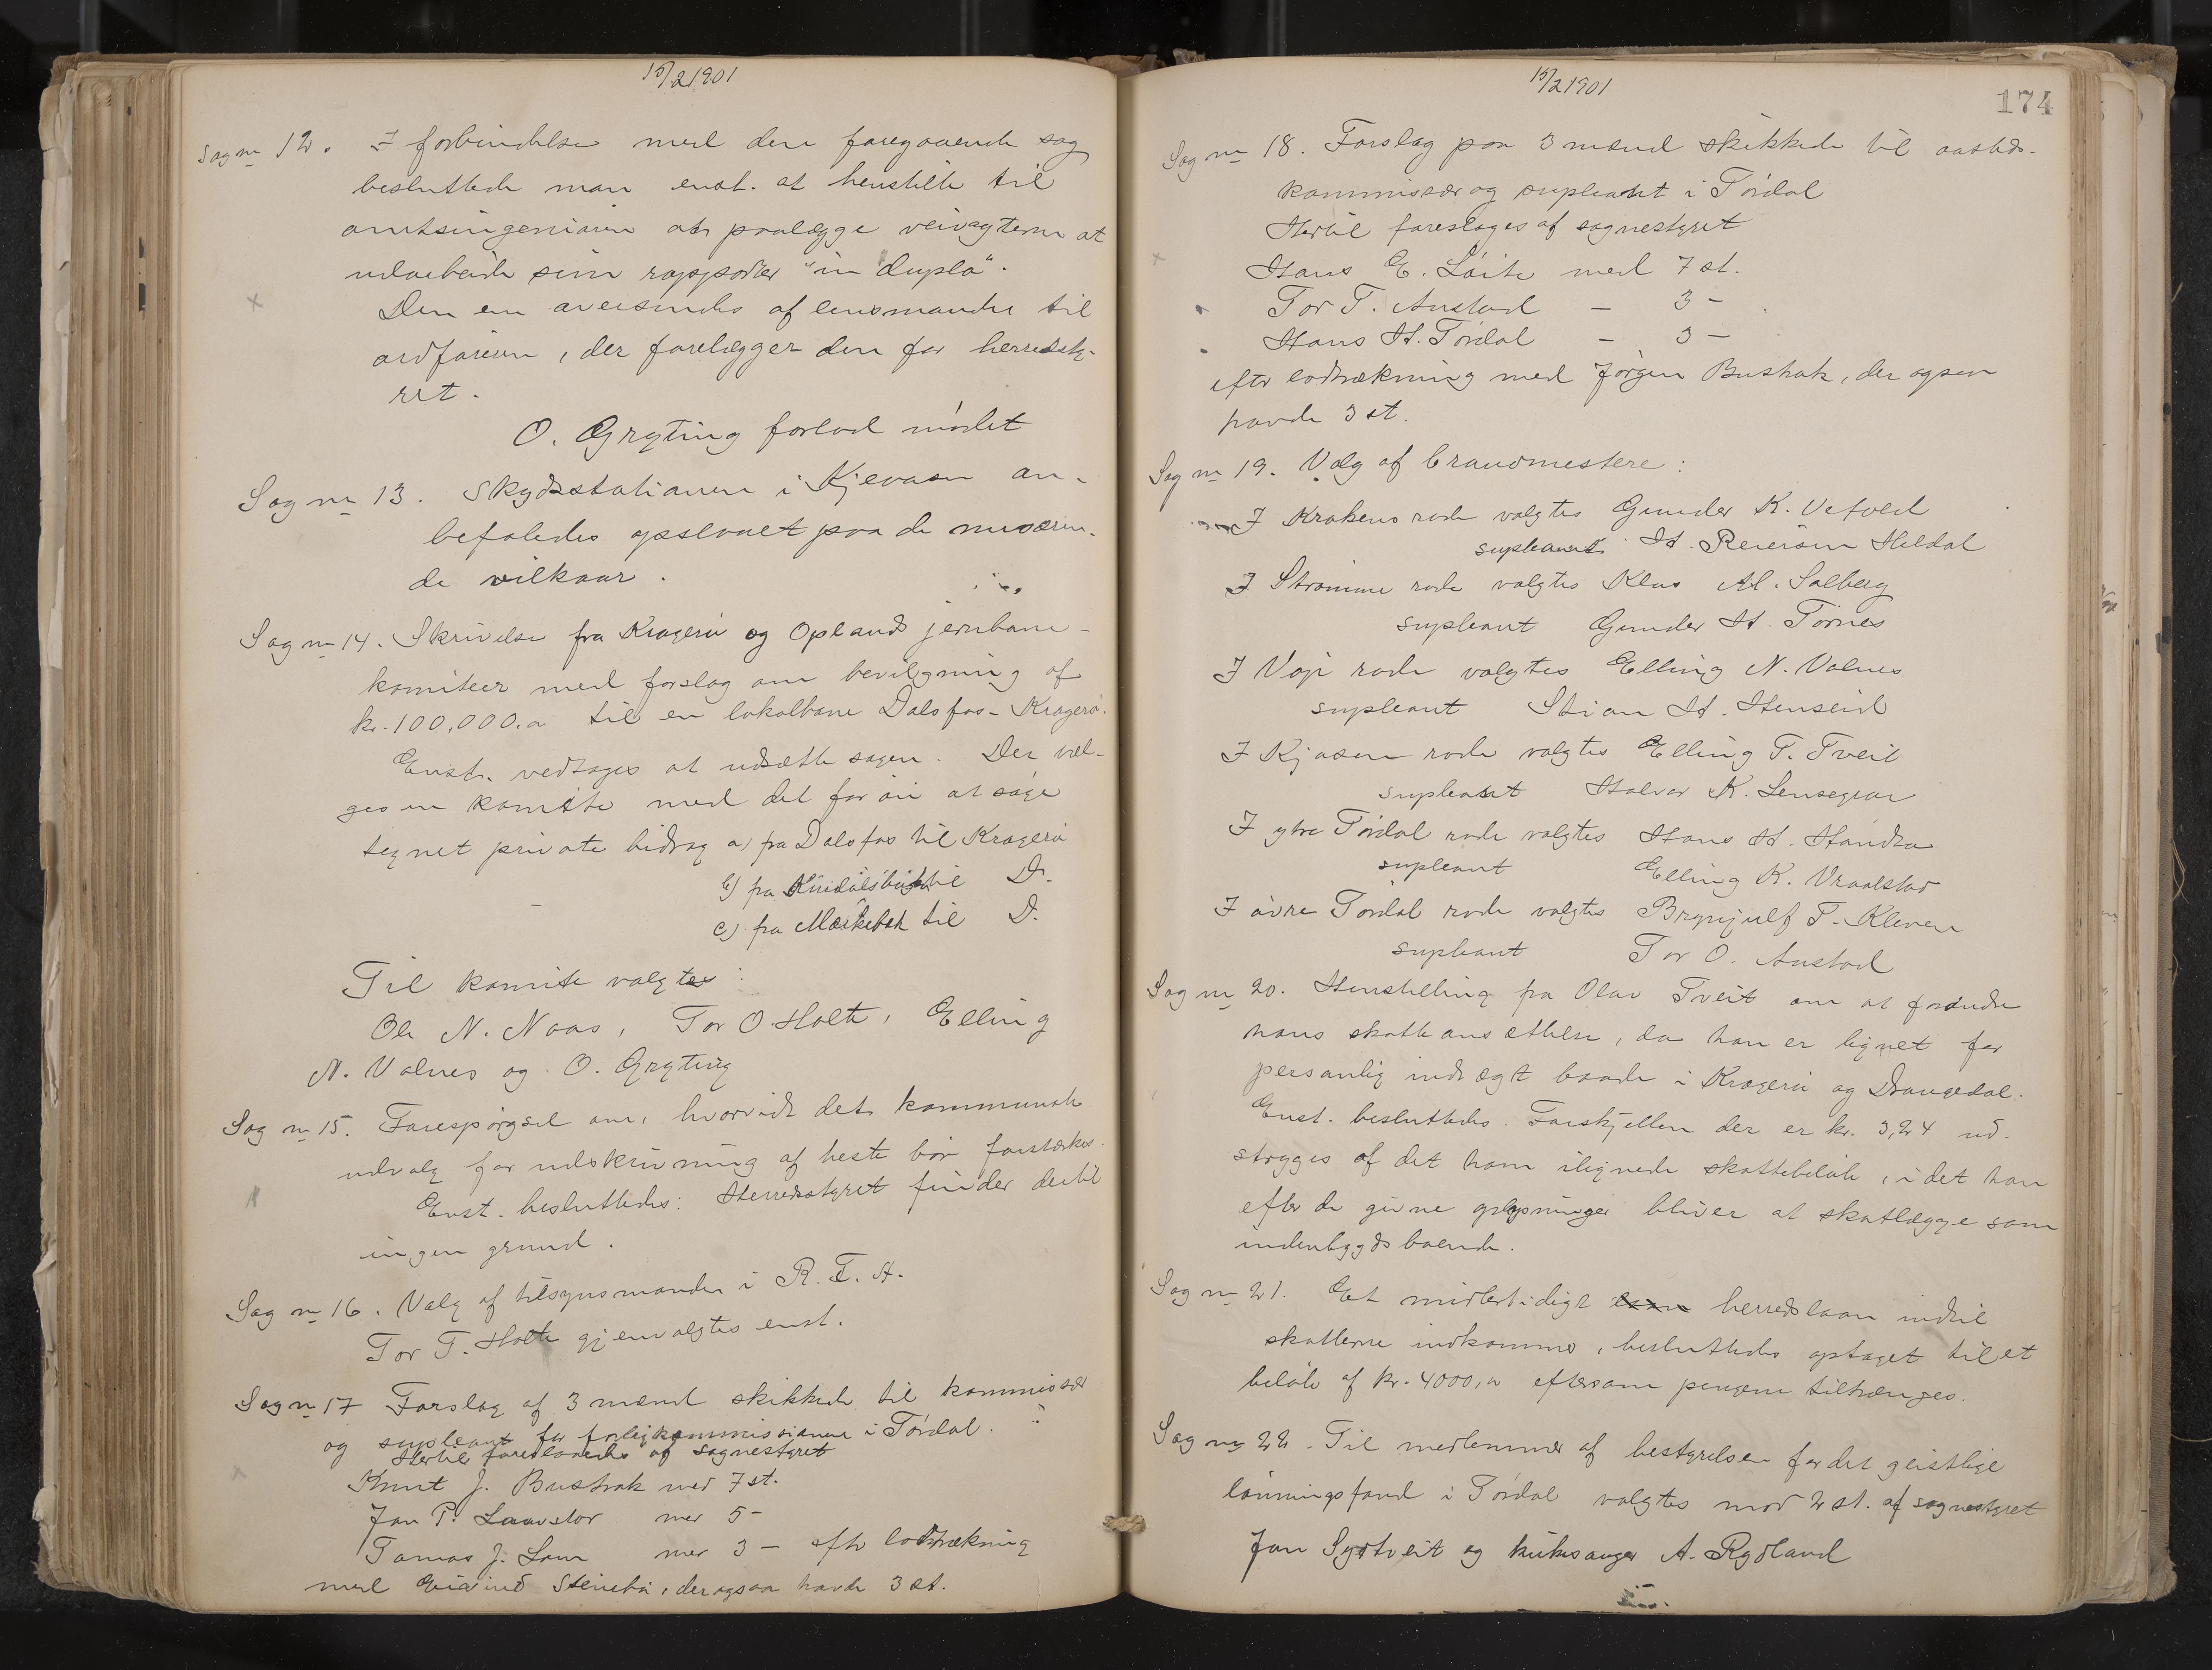 15/2 1901
Sag nr 12. I forbindelse med den foregaaende sag
besluttede man enst. at henstille til
amtsingeniøren at paalægge veivagterne at
udarbeide sine rapporter "in duplo".
Den ene oversendes af lensmanden til
ordføreren, der forelægger den for herredsty-
ret.
O. Gryting forlod mødet
Sag nr 13. Skydsstationen i Kjevasen an-
befaledes opslaaet paa de nuværen-
de vilkaar.
Sag nr 14. Skrivelse fra Kragerø og Oplands jernbane-
komiteer med forslag om bevilgning af
kr. 100,000.00 til en lokalbane Dalsfos-Kragerø.
Enst. vedtages at udsætte sagen. Der væl-
ges en komite med det for øie at søge
tegnet private bidrag a) fra Dalsfos til Kragerø
b) fra til Do.
c) fra til Do.
Til komite valgtes:
Ole N. Naas, Tor O Holte, Elling
N. Valnes og O. Gryting
Sag nr 15. Forespørgsel om, hvorvidt det kommunale
udvalg for udskrivning af heste bør forstærkes.
Enst. besluttedes: Herredsstyret finder dertil
ingen grund.
Sag nr 16. Valg af tilsynsmænder i R. T. A.
Tor T. Holte gjenvalgtes enst.
Sag nr 17 Forslag af 3 mænd skikkede til kommissær
og supleant for forligkommissionen i Tørdal.
Hertil foresloaedes af sognestyret
Knut J. Bustrak med 7 st.
Jon P. med 5 -
Tomas J. med 3 - efter lodtrækning
med Eivind Stenebø, der ogsaa havde 3 st.
15/2 1901
174
Sag nr 18. Forslag paa 3 mænd skikkede til aasteds-
kommissær og supleant i Tørdal
Hertil foreslages af sognestyret
Hans E. Løite med 7 st.
Tor T. Austad - 3 -
Hans H. Tørdal - 3 -
efter lodtrækning med Jørgen Bustrak, der ogsaa
havde 3 st.
Sag nr 19. Valg af brandmestere:
I Krokens rode valgtes Gunder K. Vefald
supleant H. Reiersen Heldal
I Strømme rode valgtes Klas Al. Solberg
supleant Gunder H. Tørnes
I Vøje rode valgtes Elling N. Valnes
supleant Stian H. Henseid
I Kjøsen rode valgtes Elling T. Tveit
supleant Halvor K. Lensegrav
I ytre Tørdal rode valgtes Hans H.
supleant Elling K. Vraalstad
I øvre Tørdal rode valgtes Brynjulf T. Kleven
supleant Tor O. Austad
Sag nr 20. Henstilling fra Olav Tveit om at forandre
hans skatteansættelse, da han er lignet for
personlig indtægt baade i Kragerø og Drangedal.
Enst. besluttedes. Forskjellen der er kr. 3,24 ud-
stryges af det ham ilignede skattebeløb, i det han
efter de givne oplysninger bliver at skatlægge som
indenbygds boende.
Sag nr 21. Et midlertidigt herredslaan indtil
skatterne indkommer, besluttedes optaget til et
beløb af kr. 4000,00 eftersom pengene tiltrænges.
Sag nr 22. Til medlemmer af bestyrelsen for det geistlige
lønningsfond i Tørdal valgtes mod 2 st. af sognestyret
Jon Sydtveit og kirkesanger A. Rydland